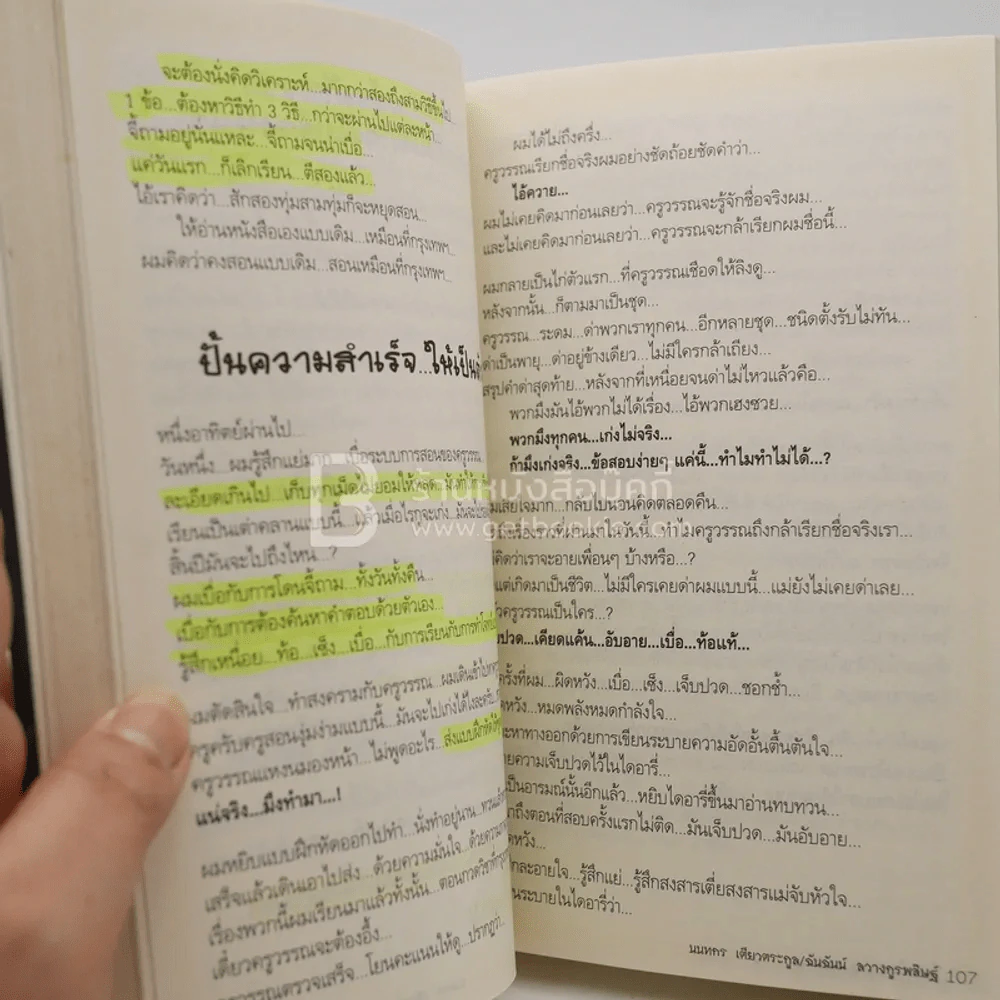 จะต้องนั่งคิดวิเคราะห์...มากกว่าสองถึงสามวิธีขึ้นไป
1 ข้อ...ต้องหาวิธีทำ 3 วิธี...กว่าจะผ่านไปแต่ละหน้า...
จี้ถามอยู่นั่นแหละ...จี้ถามจนน่าเบื่อ...
แค่วันแรก...ก็เลิกเรียน...ตีสองแล้ว...
ไอ้เราคิดว่า...สักสองทุ่มสามทุ่มก็จะหยุดสอน...
ให้อ่านหนังสือเองแบบเดิม...เหมือนที่กรุงเทพฯ...
ผมคิดว่าคงสอนแบบเดิม...สอนเหมือนที่กรุงเทพฯ...
ปั้นความสำเร็จ...ให้เป็น
หนึ่งอาทิตย์ผ่านไป...
วันหนึ่ง...ผมรู้สึกแย่มาก...เบื่อระบบการสอนของครูวรรณ
ละเอียดเกินไป...เก็บทุกเม็ด
เรียนเป็นเต่าคลานแบบนี้...แล้วเมื่อไรกูจะเก่ง...
สิ้นปีมันจะไปถึงไหน...?
ผมเบื่อกับการโดนจี้ถาม...ทั้งวันทั้งคืน...
เบื่อกับการต้องค้นหาคำตอบด้วยตัวเอง...
รู้สึกเหนื่อย...ท้อ...เซ็ง...เบื่อ...กับการเรียนกับการทำโจทย์
ผมตัดสินใจ...ทำสงครามกับครูวรรณ...ผมเดินเข้าไป
ครูครับครูสอนงุ่มง่ามแบบนี้...มันจะไปเก่งได้ไงละครับ
ครูวรรณแหงนมองหน้า...ไม่พูดอะไร...ส่งแบบฝึกหัด
แน่จริง...มึงทำมา...!
ผมหยิบแบบฝึกหัดออกไปทำ...นั่งทำอยู่นาน...
เสร็จแล้วเดินเอาไปส่ง...ด้วยความมั่นใจ...
เรื่องพวกนี้ผมเรียนมาแล้วทั้งนั้น...ตอนกวดวิชาที่
เดี๋ยวครูวรรณจะต้องอึ้ง...
ครูวรรณตรวจเสร็จ...โยนคะแนนให้ดู...ปรากฏว่า...
ผมได้ไม่ถึงครึ่ง...
ครูวรรณเรียกชื่อจริงผมอย่างชัดถ้อยชัดคำว่า...
ไอ้ควาย...
ผมไม่เคยคิดมาก่อนเลยว่า...ครูวรรณจะรู้จักชื่อจริงผม...
และไม่เคยคิดมาก่อนเลยว่า...ครูวรรณจะกล้าเรียกผมชื่อนี้...
ผมกลายเป็นไก่ตัวแรก...ที่ครูวรรณเชือดให้ลิงดู...
หลังจากนั้น...ก็ตามมาเป็นชุด...
ครูวรรณ...ระดม...ด่าพวกเราทุกคน...อีกหลายชุด...ชนิดตั้งรับไม่ทัน...
ด่าเป็นพายุ...ด่าอยู่ข้างเดียว...ไม่มีใครกล้าเถียง...
สรุปคำด่าสุดท้าย...หลังจากที่เหนื่อยจนด่าไม่ไหวแล้วคือ...
พวกมึงมันไอ้พวกไม่ได้เรื่อง...ไอ้พวกเฮงซวย...
พวกมึงทุกคน...เก่งไม่จริง...
ถ้ามึงเก่งจริง...ข้อสอบง่ายๆ แค่นี้...ทำไมทำไม่ได้...?
เสียใจมาก...กลับไปนอนคิดตลอดคืน...
เรื่องราวที่ผ่านมาในวันนี้...ทำไมครูวรรณถึงกล้าเรียกชื่อจริงเรา...
คิดว่าเราจะอายเพื่อนๆ บ้างหรือ...?
แต่เกิดมาเป็นชีวิต...ไม่มีใครเคยด่าผมแบบนี้...แม่ยังไม่เคยด่าเลย...
ครูวรรณเป็นใคร...?
ปวด...เคียดแค้น...อับอาย...เบื่อ...ท้อแท้...
ครั้งที่ผม...ผิดหวัง...เบื่อ...เซ็ง...เจ็บปวด...ชอกช้ำ...
หวัง...หมดพลังหมดกำลังใจ...
จะหาทางออกด้วยการเขียนระบายความอัดอั้นตื้นตันใจ...
ยความเจ็บปวดไว้ในไดอารี่...
เป็นอารมณ์นั้นอีกแล้ว...หยิบไดอารี่ขึ้นมาอ่านทบทวน...
าถึงตอนที่สอบครั้งแรกไม่ติด...มันเจ็บปวด...มันอับอาย...
ดหวัง...
กละอายใจ...รู้สึกแย่...รู้สึกสงสารเตี่ยสงสารแม่จับหัวใจ...
นระบายในไดอารี่ว่า...
นนทกร เตียวตระกูล/ฉันฉันน์ ลวางกูรพลิษฐ์ 107
B ร้านหนังสือบุ๊คกี้
www.getbookie.com